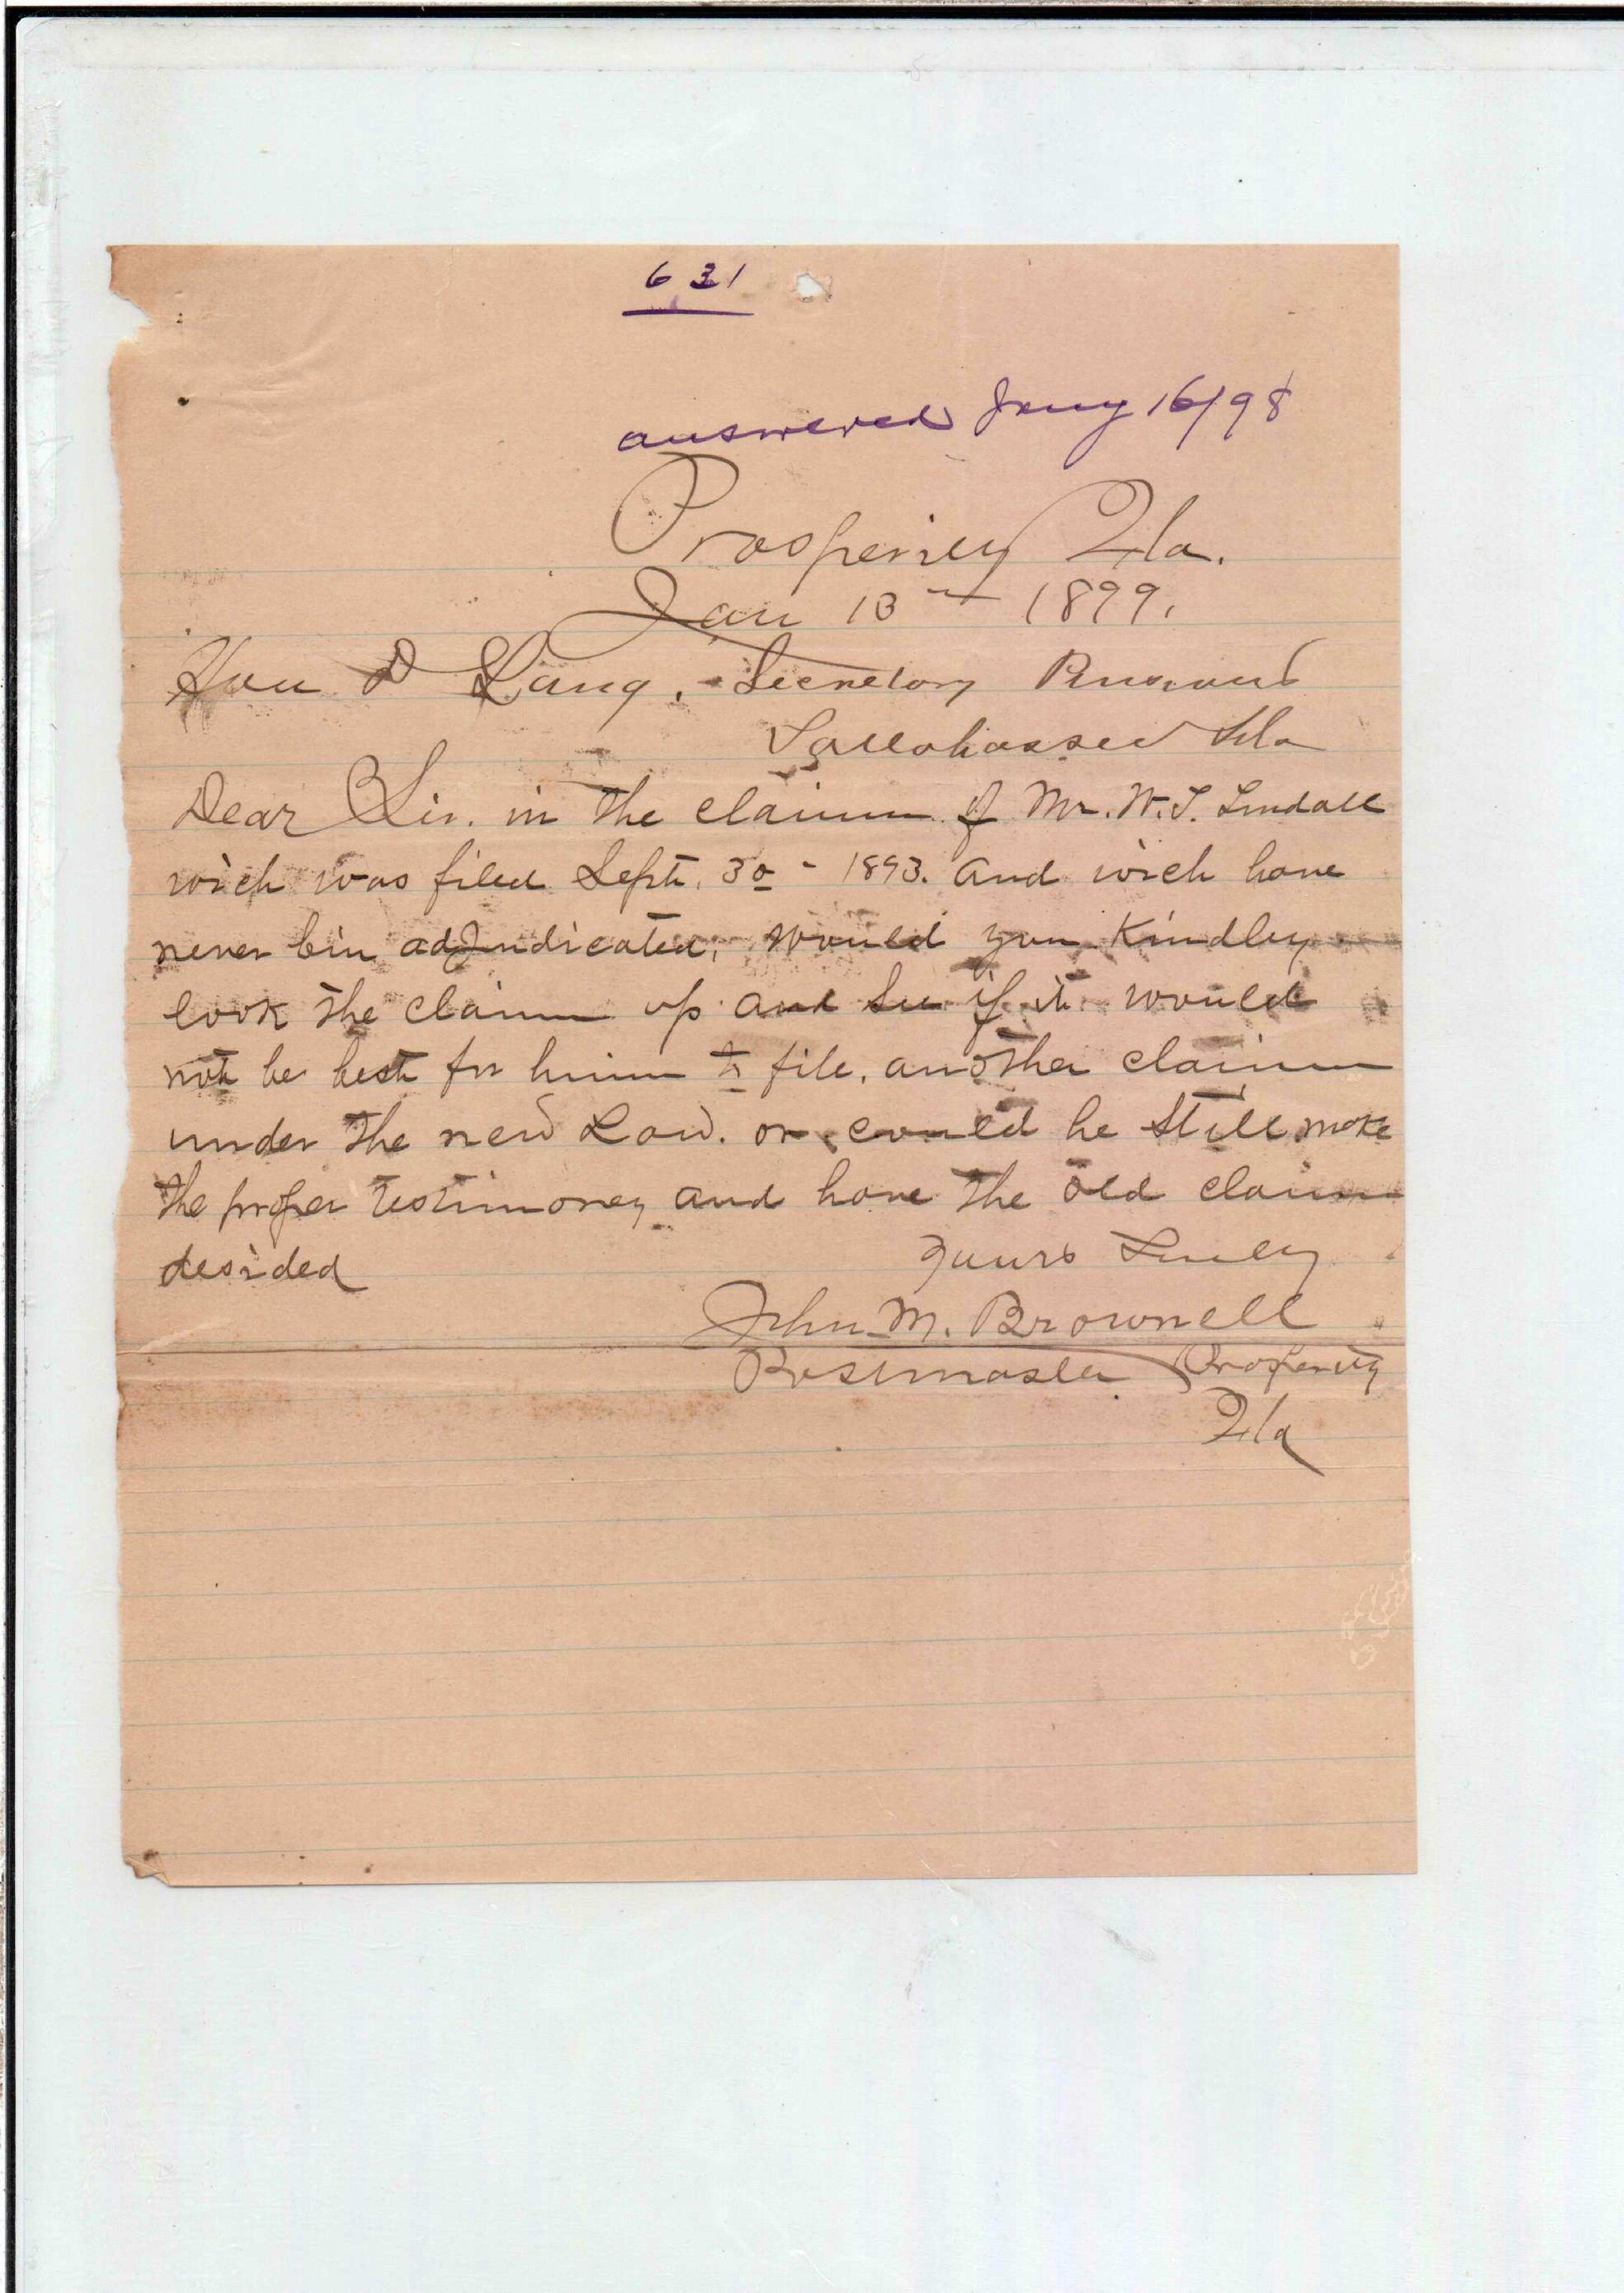 631
answered Jany 16/98
Prosperity Fla.
Jan 13th 1899.
Hon D Lang. Secretary
Tallahassee Fla
Dear Sir. in the claim of Mr. W. T.
wich was filed Sept. 30 - 1893. and wich have
never bin adjudicated, would you Kindley
look the claim up and see if it would
not be best for him to file, another claim
under the new Law. or could he still make
the proper testimoney and have the old claim
desided
Yours Truley
John M. Brownell
Postmaster Prosperity
Fla